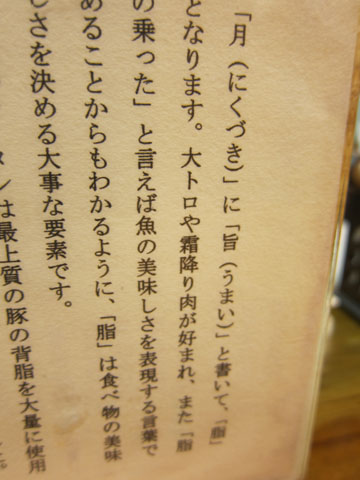 「月（にくづき）」に「旨（うまい）」と書いて、「脂」
となります。大トロや霜降り肉が好まれ、また「脂
の乗った」と言えば魚の美味しさを表現する言葉で
めることからもわかるように、「脂」は食べ物の美味
しさを決める大事な要素です。
は最上質の豚の背脂を大量に使用